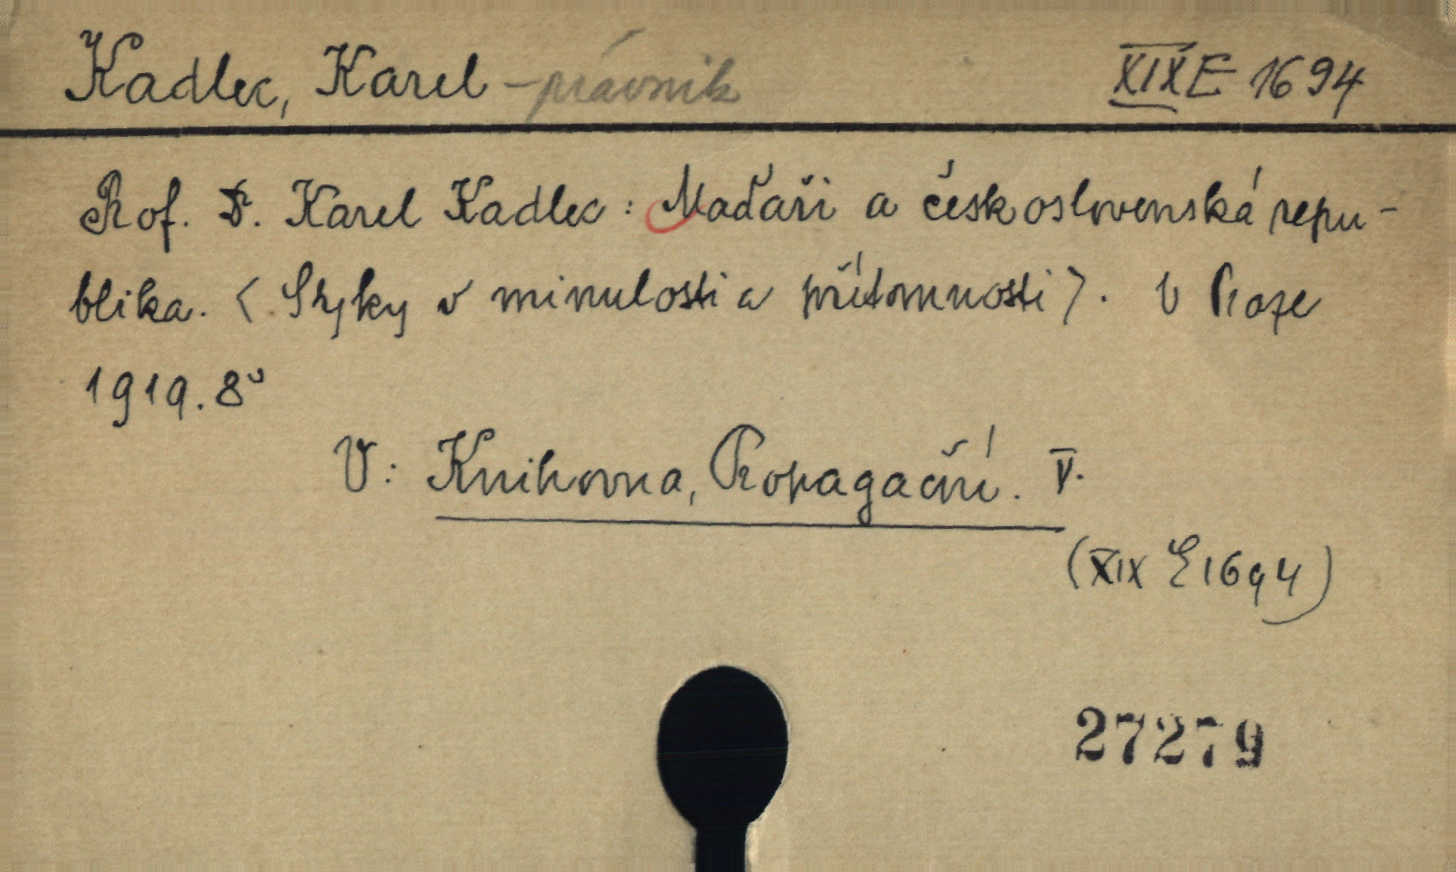 Kadlec, Karel - právník XIX E 1694
Prof. Dr. Karel Kadlec: Maďaři a československá repu-
blika. < Styky v minulosti a přítomnosti >. V Praze
1919. 8°
V: Knihovna, Propagační. V.
(XIX E 1694)
27279